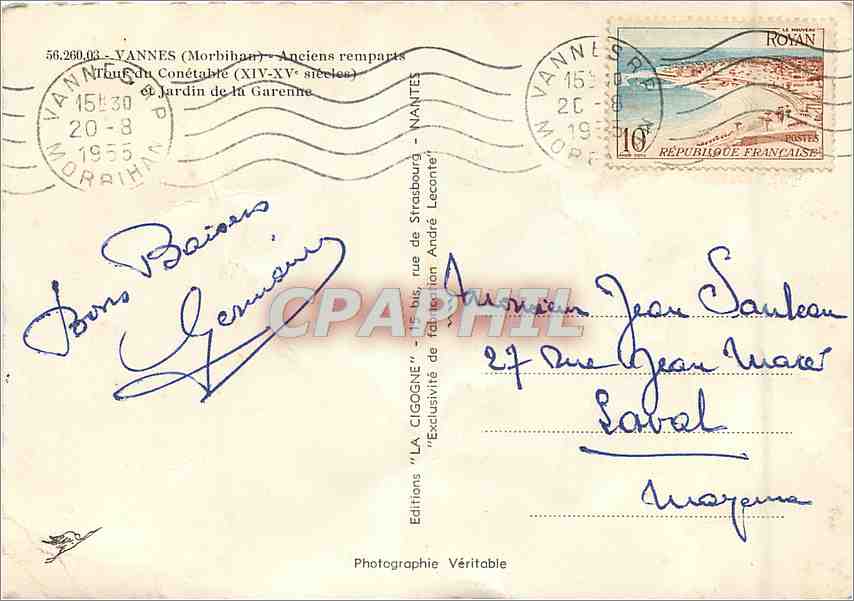 56.260.03 - VANNES (Morbihan) - Anciens remparts
Tour du Conétable (XIV-XVe siècles)
et Jardin de la Garenne
VANNES RP
15H30
20-8
1955
MORBIHAN
VANNES RP
15H30
20-8
1955
MORBIHAN
LE NOUVEAU
ROYAN
10F
POSTES
RÉPUBLIQUE FRANÇAISE
Bons Baisers
Germaine
Editions "LA CIGOGNE" - 15 bis, rue de Strasbourg - NANTES
"Exclusivité de fabrication André Leconte"
CPAPHIL
Monsieur Jean Sauleau
27 Rue Jean Macé
Laval
Mayenne
Photographie Véritable